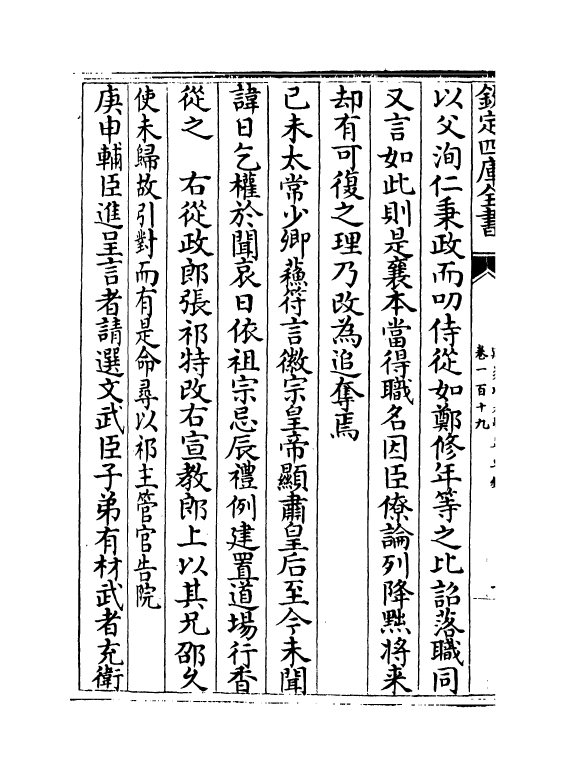 欽定四庫全書
卷一百十九
以父洵仁秉政而叨侍從如鄭修年等之比詔落職同
又言如此則是襄本當得職名因臣僚論列降黜將来
却有可復之理乃改為追奪焉
已未太常少卿蘇符言徽宗皇帝顯肅皇后至今未聞
諱日乞權於聞哀日依祖宗忌辰禮例建置道場行香
從之　右從政郎張祁特改右宣教郎上以其兄邵久
使未歸故引對而有是命尋以祁主管官告院
庚申輔臣進呈言者請選文武臣子弟有材武者充衛